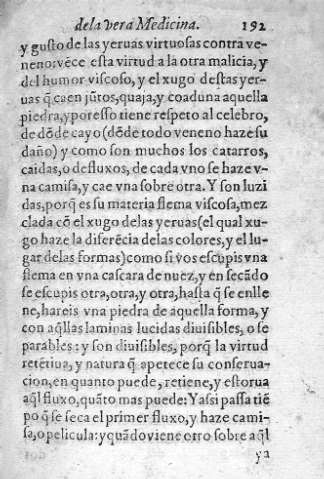 de la vera Medicina. 192
y gusto de las yeruas virtuosas contra ve-
neno: vėce esta virtud a la otra malicia, y
del humor viscoso, y el xugo destas yer-
uas q̃ caen jũtos, quaja, y coaduna aquella
piedra, y por esso tiene respeto al celebro,
de dõde cayo (dõde todo veneno haze su
daño) y como son muchos los catarros,
caidas, o defluxos, de cada vno se haze v-
na camisa, y cae vna sobre otra. Y son luzi
das, porq̃ es su materia flema viscosa, mez
clada cõ el xugo delas yeruas (el qual xu-
go haze la diferẽcia delas colores, y el lu-
gar delas formas) como si vos escupis vna
flema en vna cascara de nuez, y en secãdo
se escupis otra, otra, y otra, hasta q̃ se enlle
ne, hareis vna piedra de aquella forma, y
con aq̃llas laminas lucidas diuisibles, o se
parables: y son diuisibles, porq̃ la virtud
retẽtiua, y natura q̃ apetece su conserua-
cion, en quanto puede, retiene, y estorua
aq̃l fluxo, quãto mas puede: Y assi passa tiẽ
po q̃ se seca el primer fluxo, y haze cami-
sa, o pelicula: y quãdo viene otro sobre aq̃l
ya